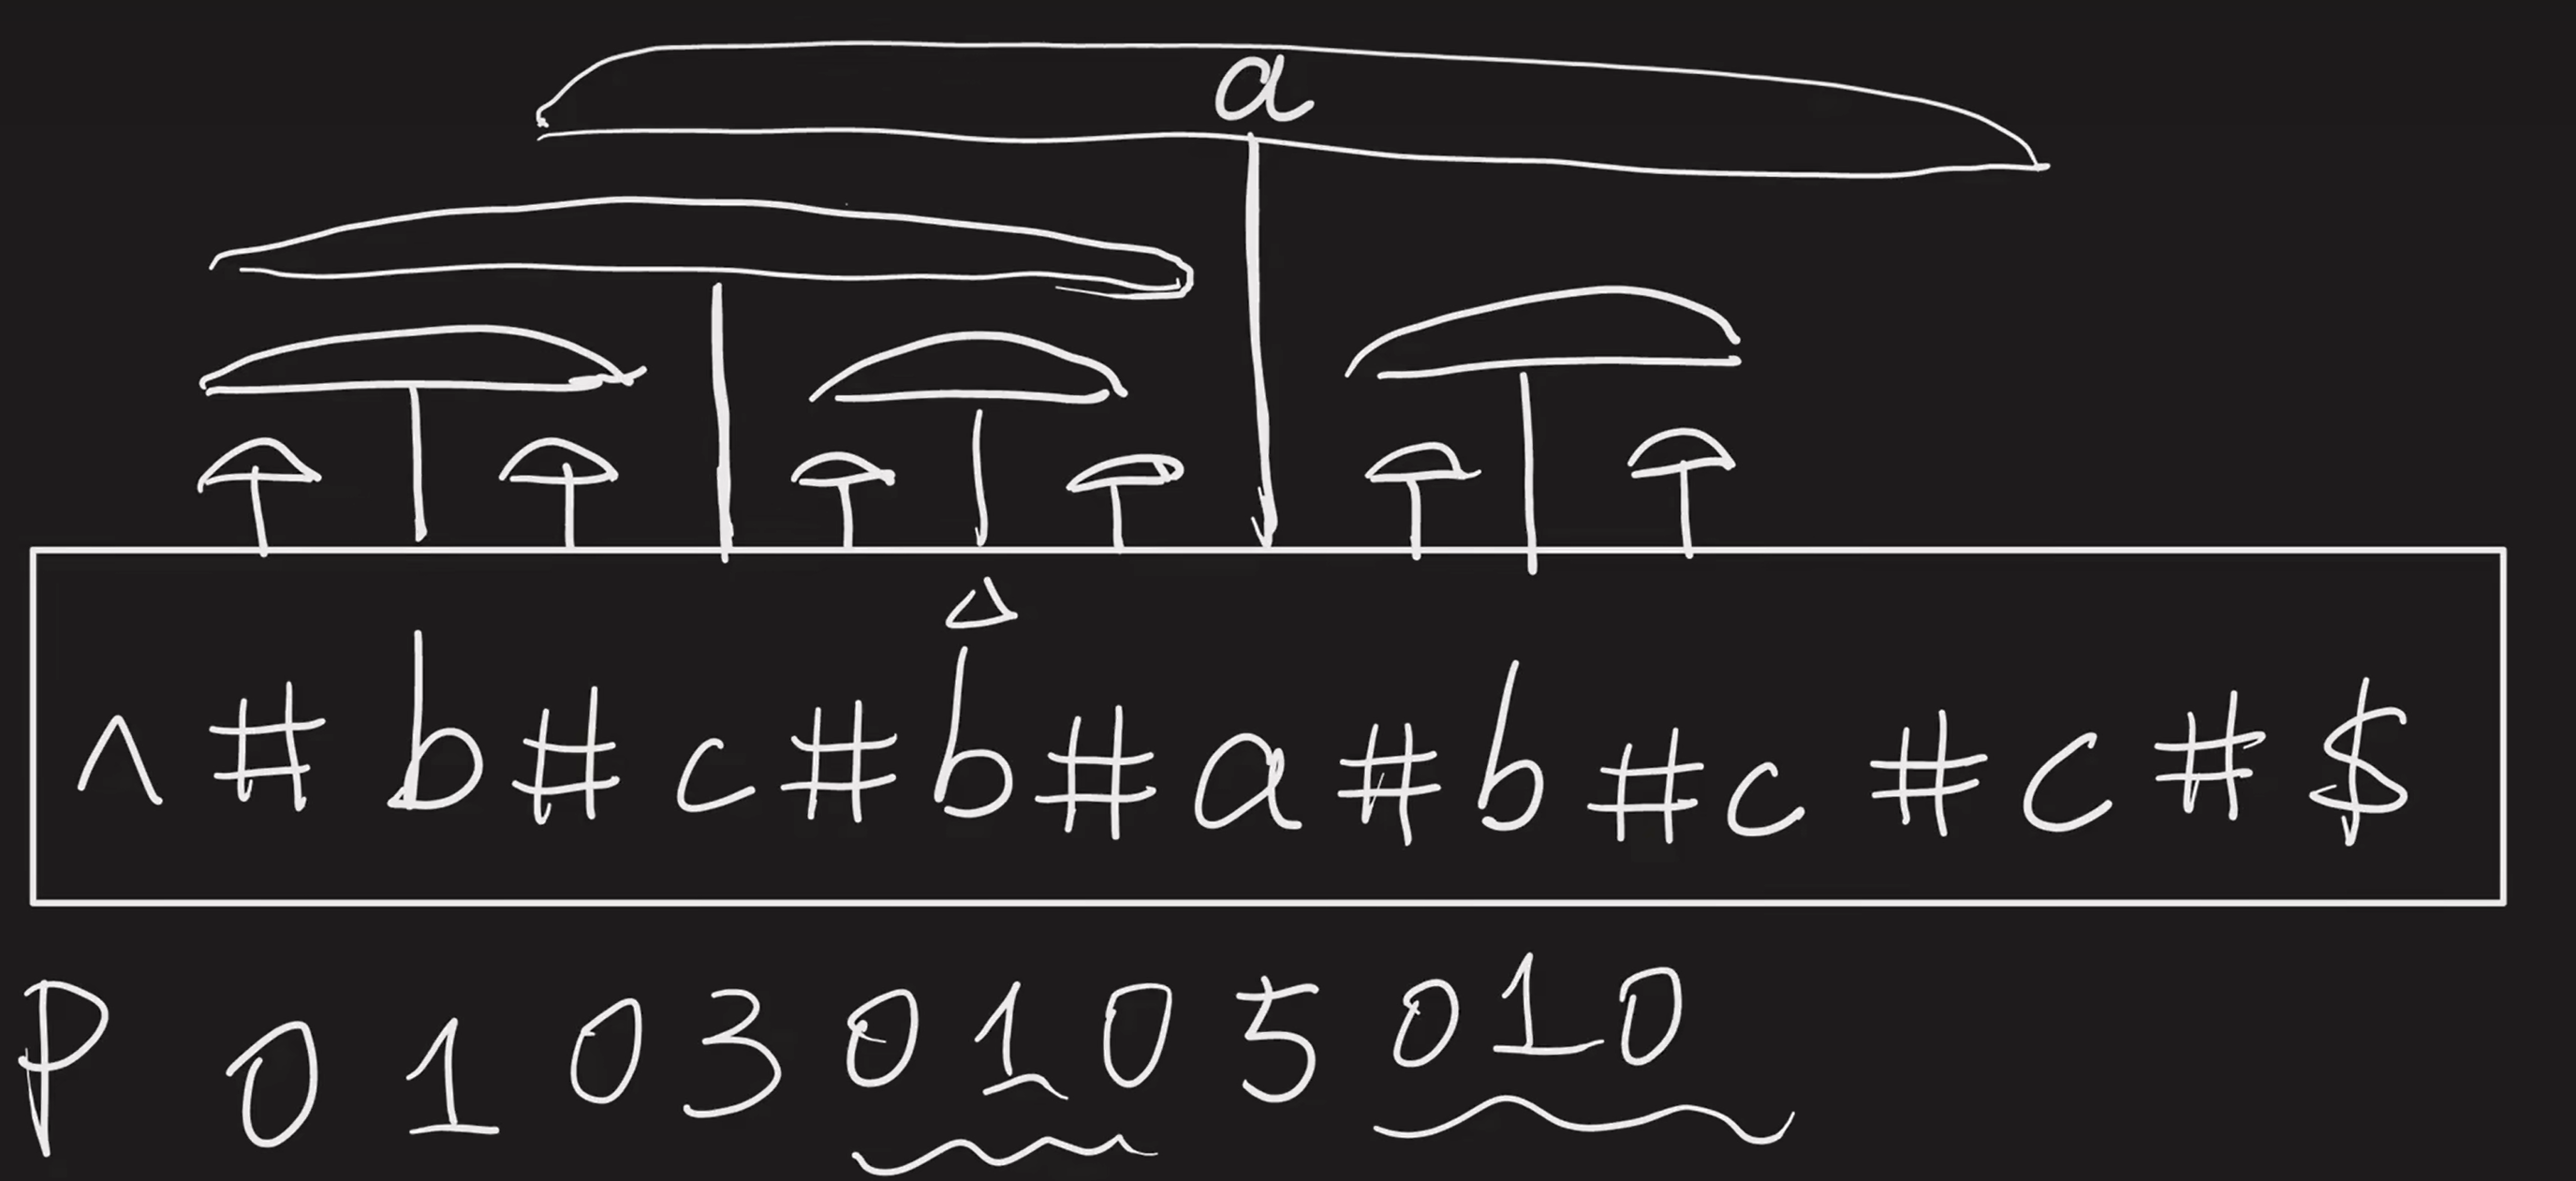 a
^ # b # c # b # a # b # c # c # $
P 0 1 0 3 0 1 0 5 0 1 0